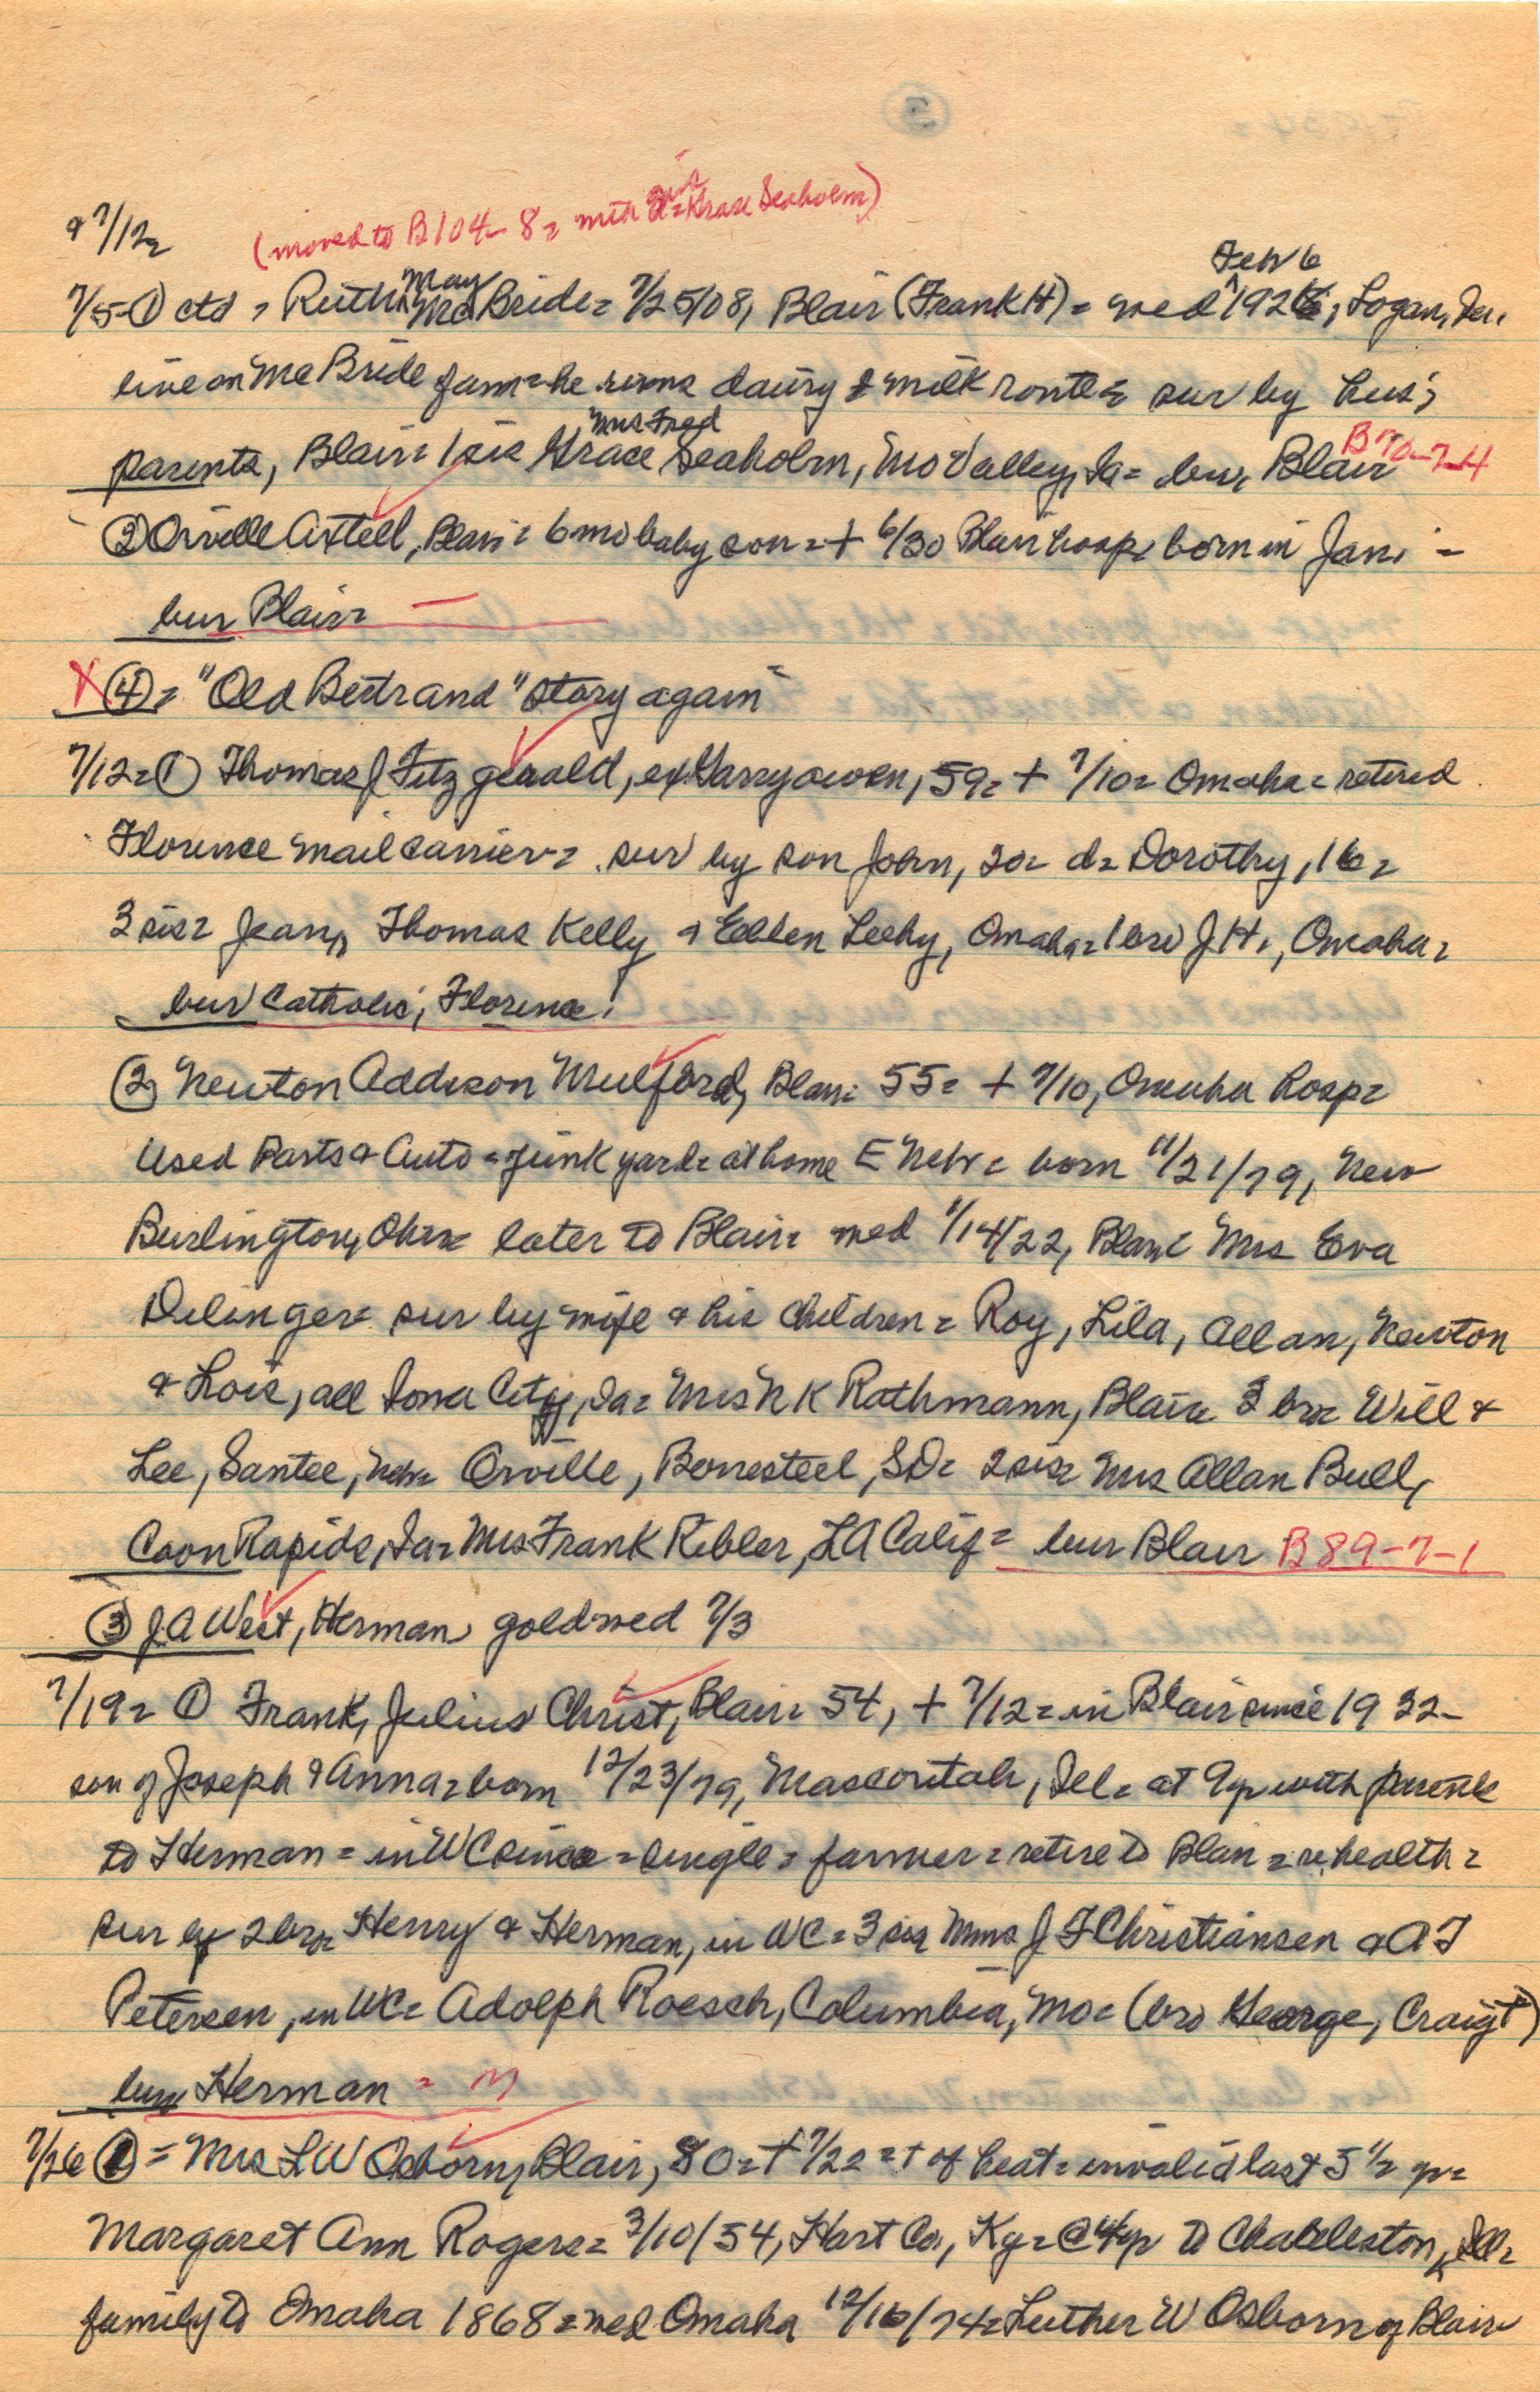 (moved to B104-8= with sis=Grace Seaholm)
& 7/12=
Feb 6
7/5-① ctd = Ruth May McBride= 7/25/08, Blair (Frank H)= wed ^ 1926, Logan, Ia.
live on McBride farm=he runs dairy & milk route= sur by hus;
Mrs Fred
parents, Blair= 1 sis Grace Seaholm, Mo Valley, Ia= bur Blair B70-7-4
② Orville Axtell, Blair= 6 mo baby son=+ 6/30 Blair hosp= born in Jan. -
bur Blair=
X ④= "Old Bertrand" story again=
7/12=① Thomas J Fitzgerald, ex Garryowen, 59= + 7/10= Omaha= retired
Florence mail carrier= sur by son John, 20= d= Dorothy, 16=
3 sis= Jean, Thomas Kelly & Ellen Leehy, Omaha=1 bro J.H., Omaha=
bur Catholic, Florence.
② Newton Addison Mulford, Blair= 55= + 7/10, Omaha hosp=
Used Parts & Auto=junk yard= at home E Neb= born 11/21/79, New
Burlington, Ohio= later to Blair= wed 1/14/22, Blair= Mrs Eva
Dilinger= sur by wife & his children= Roy, Lila, Allan, Newton
& Lois, all Iowa City, Ia= Mrs N K Rathmann, Blair= 3 bro= Will &
Lee, Santee, Neb= Orville, Bonesteel, SD= 2 sis= Mrs Allan Bull,
Coon Rapids, Ia= Mrs Frank Kibler, LA Calif= bur Blair B89-7-1
③ J A West, Herman, gold wed 7/3
7/19= ① Frank, Julius Christ, Blair= 54, + 7/12= in Blair since 1932-
son of Joseph & Anna=born 12/23/79, Mascoutah, Ill= at 9 yr with parents
to Herman= in WC since=single= farmer=retire to Blair=re health=
sur by 2 bro= Henry & Herman, in WC=3 sis Mmes J F Christiansen & A J
Petersen, in WC= Adolph Roesch, Columbia, Mo= (bro George, Craig+)
bur Herman = M
7/26 ①= Mrs L W Osborn, Blair, 80=+7/22=+ of heat=invalid last 5 1/2 yr=
Margaret Ann Rogers= 3/10/54, Hart Co, Ky=@4yr to Charleston, Ill=
family to Omaha 1868=wed Omaha 12/16/74=Luther W Osborn of Blair